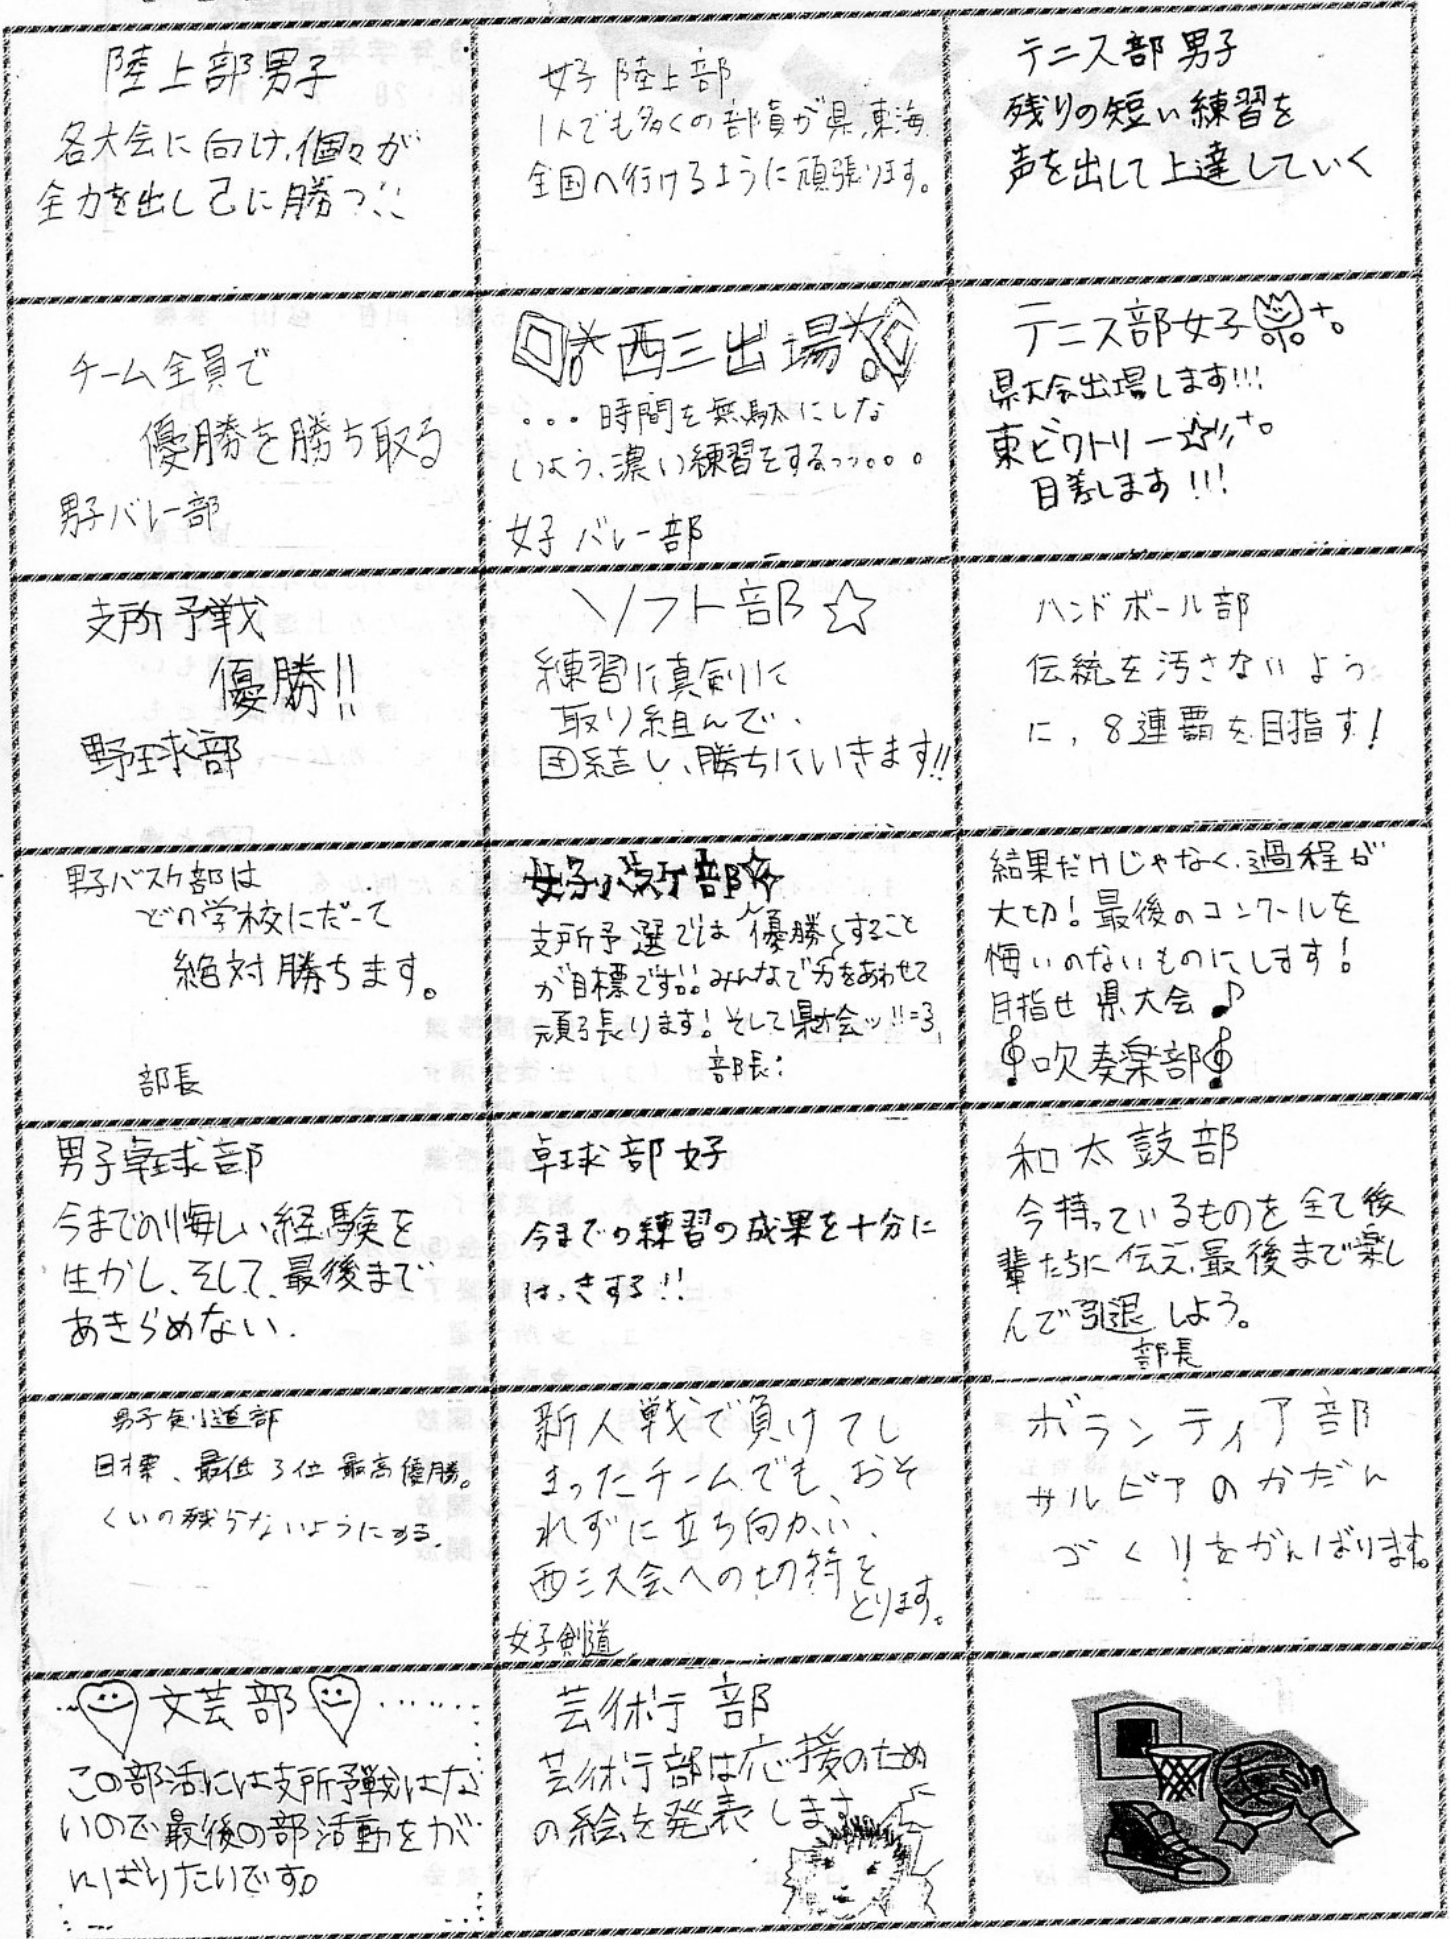 陸上部男子
各大会に向け、個々が
全力を出し己に勝つ!!
女子陸上部
1人でも多くの部員が県、東海
全国へ行けるように頑張ります。
テニス部男子
残りの短い練習を
声を出して上達していく
チーム全員で
優勝を勝ち取る
男子バレー部
西三出場
・・・時間を無駄にしな
いよう、濃い練習をするっっ。。。
女子バレー部
テニス部女子
県大会出場します!!!
東ビクトリー☆
目差します!!!
支所予戦
優勝!!
野球部
ソフト部☆
練習に真剣に
取り組んで、
団結し、勝ちにいきます!!
ハンドボール部
伝統を汚さないよう
に、8連覇を目指す!
男子バスケ部は
どの学校にだって
絶対勝ちます。
部長
女子バスケ部☆
支所予選では優勝すること
が目標です!! みんなで力をあわせて
頑張ります! そして県大会ッ!!=3
部長:
結果だけじゃなく、過程が
大切! 最後のコンクールを
悔いのないものにします!
目指せ県大会♪
吹奏楽部
男子卓球部
今までの悔しい経験を
生かし、そして、最後まで
あきらめない.
卓球部女子
今までの練習の成果を十分に
はっきする!!
和太鼓部
今持っているものを全て後
輩たちに伝え、最後まで楽し
んで引退しよう。
部長
男子剣道部
目標、最低3位 最高優勝。
くいの残らないようにする.
新人戦で負けてし
まったチームでも、おそ
れずに立ち向かい、
西三大会への切符を
とります。
女子剣道
ボランティア部
サルビアのかだん
づくりをがんばります。
文芸部
この部活には支所予戦はな
いので最後の部活動をが
んばりたいです。
芸術部
芸術部は応援のため
の絵を発表します